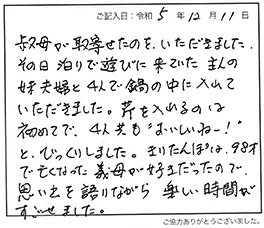 ご記入日：令和 5 年 12 月 11 日
叔母が取寄せたのを、いただきました。
その日泊りで遊びに来ていた主人の
妹夫婦と4人で鍋の中に入れて
いただきました。芹を入れるのは
初めてで、4人共"おいしいねー!"
と、びっくりしました。きりたんぽは、98才
で亡くなった義母が好きだったので
思い出を語りながら楽しい時間が
すごせました。
ご協力ありがとうございました。